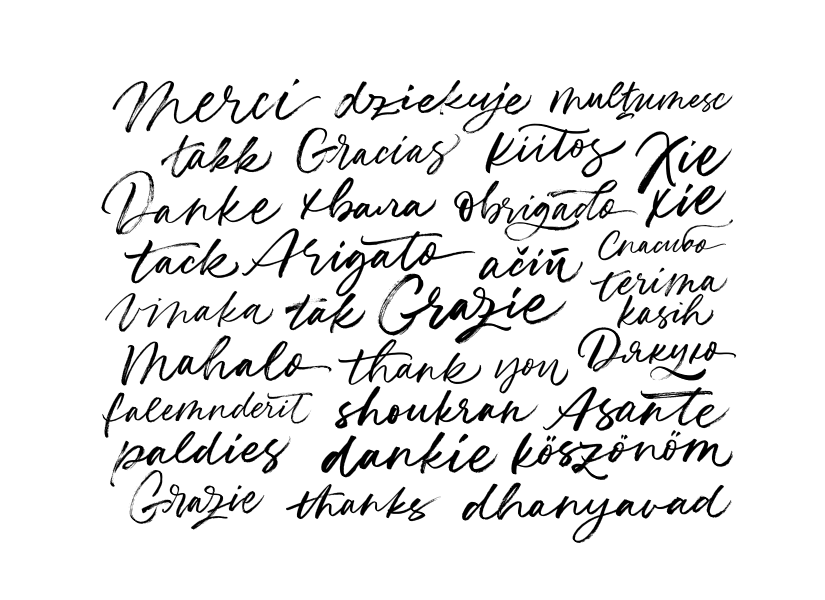 Merci dziekuje mulţumesc
takk Gracias Kiitos Xie
Danke хвала obrigado xie
tack Arigato ačiū Спасибо
vinaka tak Grazie terima
kasih
Mahalo thank you Дякую
falemnderit shoukran Asante
paldies dankie köszönöm
Grazie thanks dhanyavad